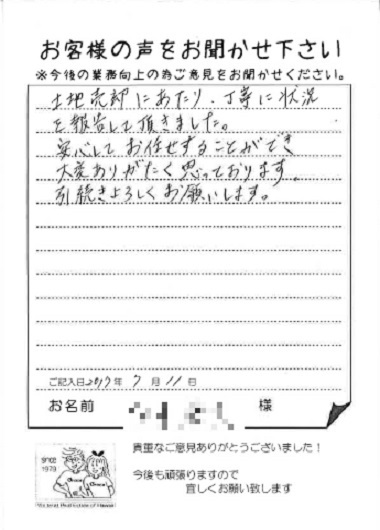 お客様の声をお聞かせ下さい
※今後の業務向上の為ご意見をお聞かせください。
土地売却にあたり、丁寧に状況
を報告して頂きました。
安心してお任せすることができ
大変ありがたく思っております。
引続きよろしくお願いします。
ご記入日2017年 7月 11日
お名前 様
SINCE
1979
貴重なご意見ありがとうございました！
今後も頑張りますので
宜しくお願い致します